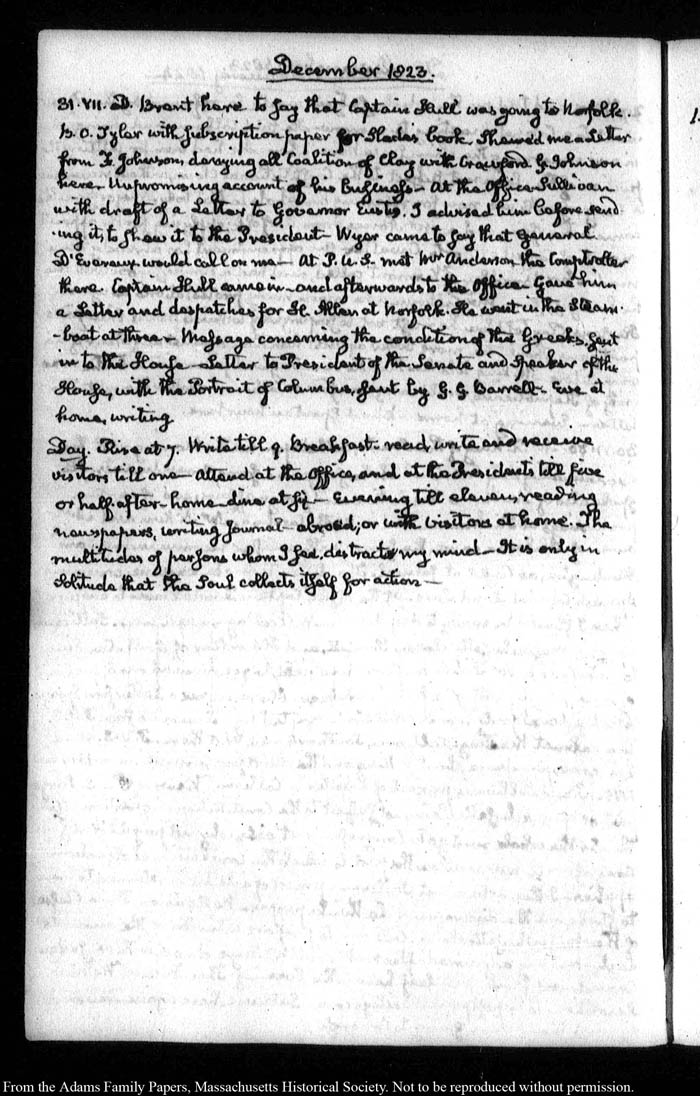 December 1823.
31. VII. D. Brent here to say that Captain Hull was going to Norfolk.
B. O. Tyler with subscription paper for Slade's book. Shewed me a Letter
from F. Johnson, denying all Coalition of Clay with Crawford. G. Johnson
here. Unpromising account of his business — At the Office. Sullivan
with draft of a Letter to Governor Eustis. I advised him before send-
-ing it, to shew it to the President — Wyer came to say that General
D'Evereux would call on me — At P. U. S. met Mr Anderson the Comptroller
there. Captain Hull came in — and afterwards to the Office — Gave him
a Letter and despatches for H. Allen at Norfolk. He went in the Steam-
-boat at three — Message concerning the condition of the Greeks, sent
in to the House — Letter to President of the Senate and Speaker of the
House, with the Portrait of Columbus, sent by G. G. Barrell — Eve at
home, writing
Day. Rise at 7. Write till 9. Breakfast — read, write and receive
visitors till one — Attend at the Office, and at the Presidents till five
or half-after — home — dine at six — Evening till eleven, reading
newspapers, writing Journal — abroad; or with visitors at home. The
multitudes of persons whom I see, distracts my mind — It is only in
Solitude that the Soul collects itself for action —
From the Adams Family Papers, Massachusetts Historical Society. Not to be reproduced without permission.